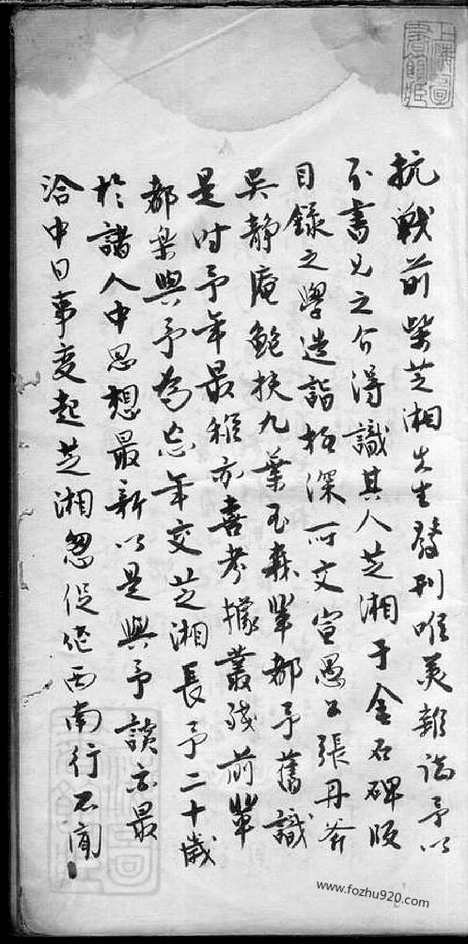 抗戰前柴芝湘先生發刊唯美雜誌予以
不書兄之介得識其人芝湘于金石碑版
目錄之學造詣極深所交宣愚公張丹斧
吳靜庵鮑扶九葉玉森輩都予舊識
是時予年最稚亦喜考據叢殘前輩
都樂與予為忘年交芝湘長予二十歲
於諸人中思想最新以是與予談亦最
洽中日事變起芝湘怱促作西南行不聞
www.fozhu920.com